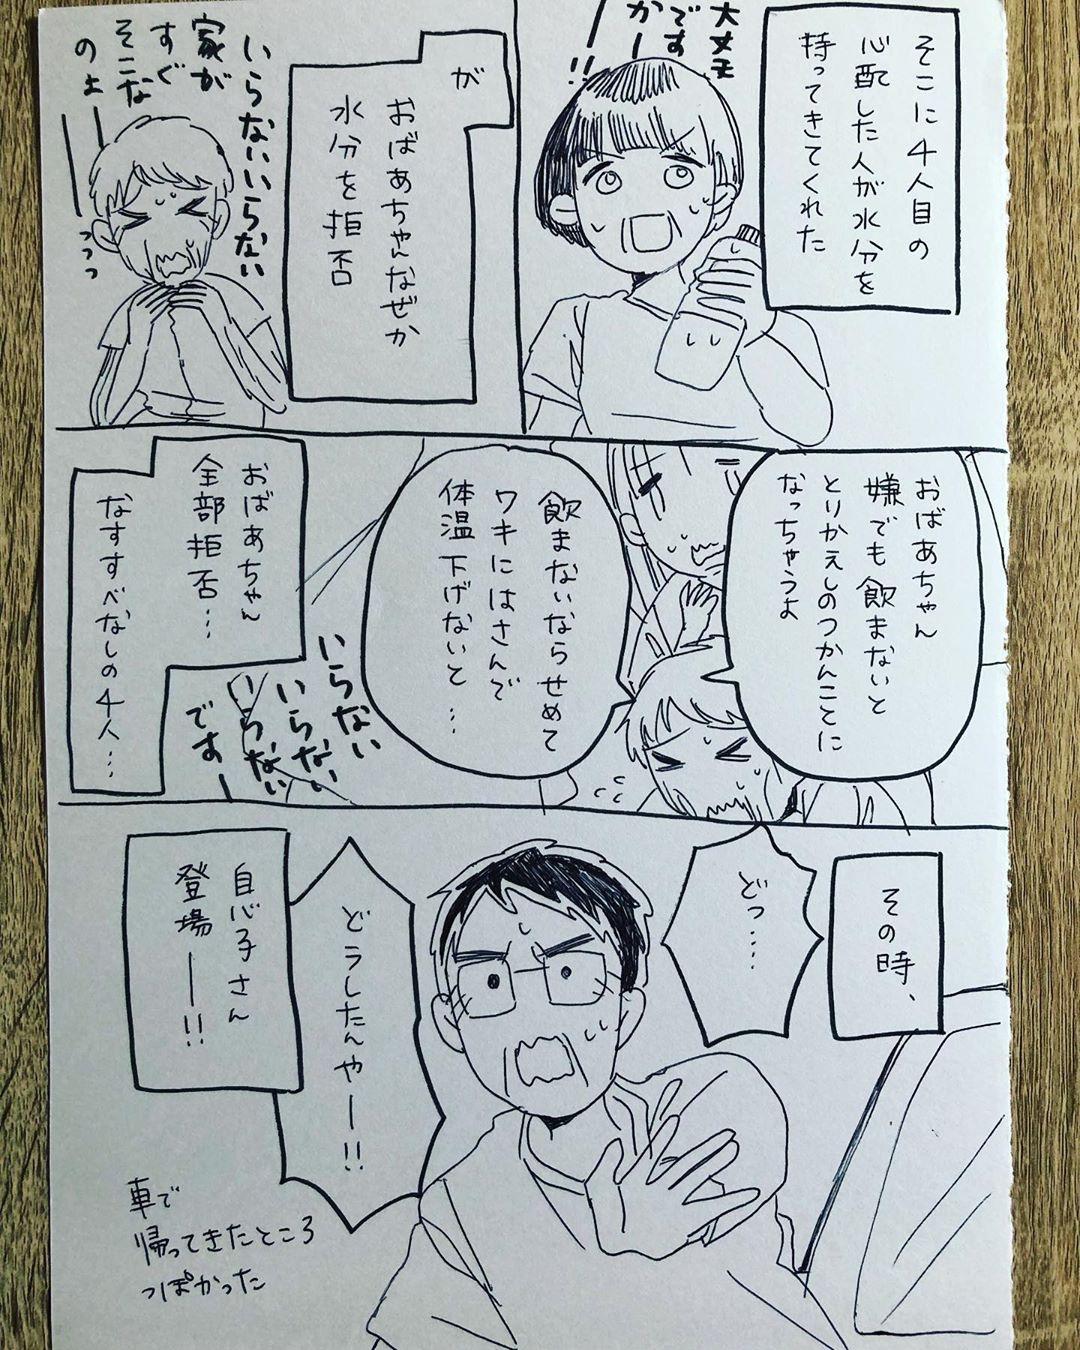 そこに4人目の
心配した人が水分を
持ってきてくれた
大丈夫
です
かー
!!
が
おばあちゃんなぜか
水分を拒否
いらないいらない
家が
すぐ
そこな
のよーー
おばあちゃん
嫌でも飲まないと
とりかえしのつかんことに
なっちゃうよ
飲まないならせめて
ワキにはさんで
体温下げないと…
いらない
いらない
いらない
ですー
おばあちゃん
全部拒否…
なすすべなしの4人…
その時、
どっ…
どうしたんやー!!
息子さん
登場ー!!
車で
帰ってきたところ
っぽかった